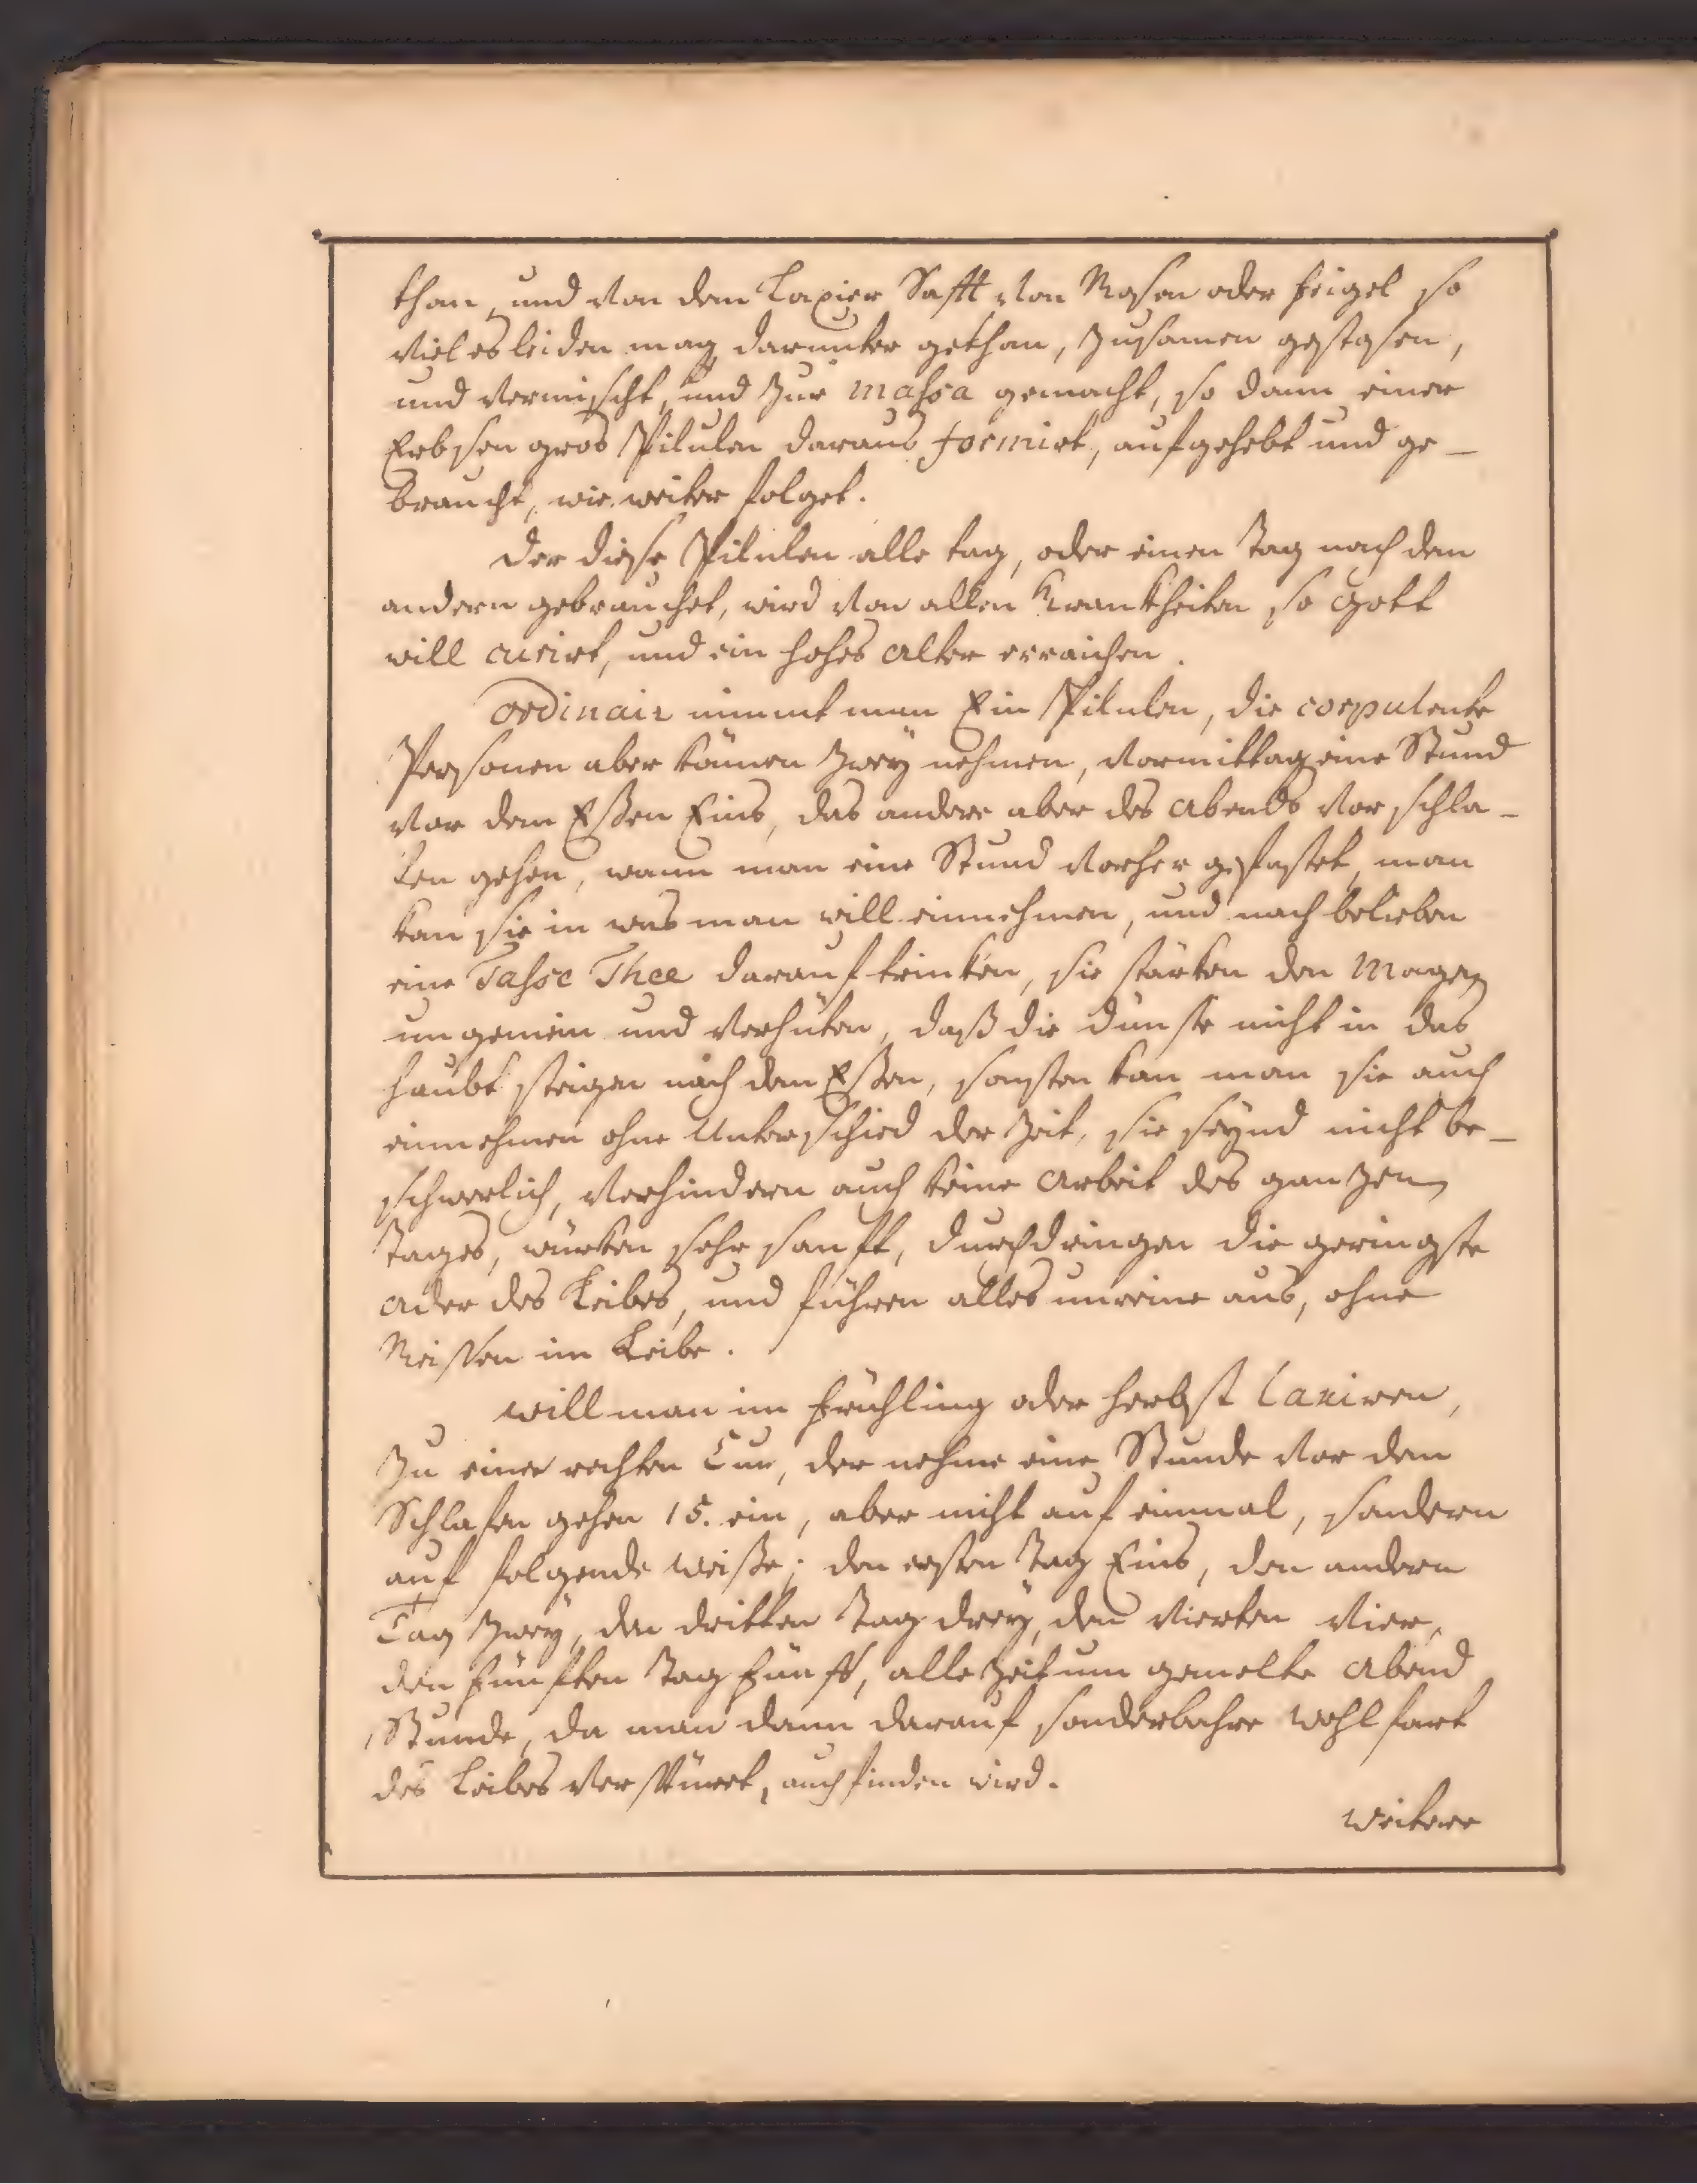 than, und von dem Laxier Safft von Rosen oder feigel so
viel es leiden mag darunter gethan, zusamen gestosen,
und vermischt, und zur massa gemacht, so dann einer
Erbsen gros Pilulen daraus formirt, aufgehebt und ge-
braucht, wie weiter folget.
der diese Pilulen alle tag, oder einen Tag nach dem
andern gebrauchet, wird von allen Krankheiten so Gott
will curirt, und ein hohes alter erraichen.
ordinair nimmt man Ein Pilulen, die corpulente
Personen aber können zweÿ nehmen, vormittag eine Stund
vor dem Eßen Eins, das andere aber des abends vor schla-
fen gehen, wann man eine Stund vorher gefastet, man
kan sie in was man will einnehmen, und nach belieben
eine Tasse Thee darauf trinken, sie stärken den Magen
ungemein und verhüten, daß die dünste nicht in das
haubt steigen nach dem Eßen, sonsten kan man sie auch
einnehmen ohne Unterschied der zeit, sie seÿnd nicht be-
schwerlich, verhindern auch keine arbeit des ganzen
Tages, würken sehr sanfft, durchdringen die geringste
ader des Leibes, und führen alles unreine aus, ohne
Reissen im Leibe.
will man im frühling oder herbst laxiren,
zu einer rechten Cur, der nehme eine Stunde vor dem
Schlafen gehen 15. ein, aber nicht auf einmal, sondern
auf folgende weiße; den ersten Tag Eins, den andern
Tag zweÿ, den dritten Tag dreÿ, den vierten vier,
den fünften Tag fünff, alle zeit um gemelte abend
Stunde, da man dann darauf sonderbahre wohlfart
des Leibes verspüret, auch finden wird.
weitere